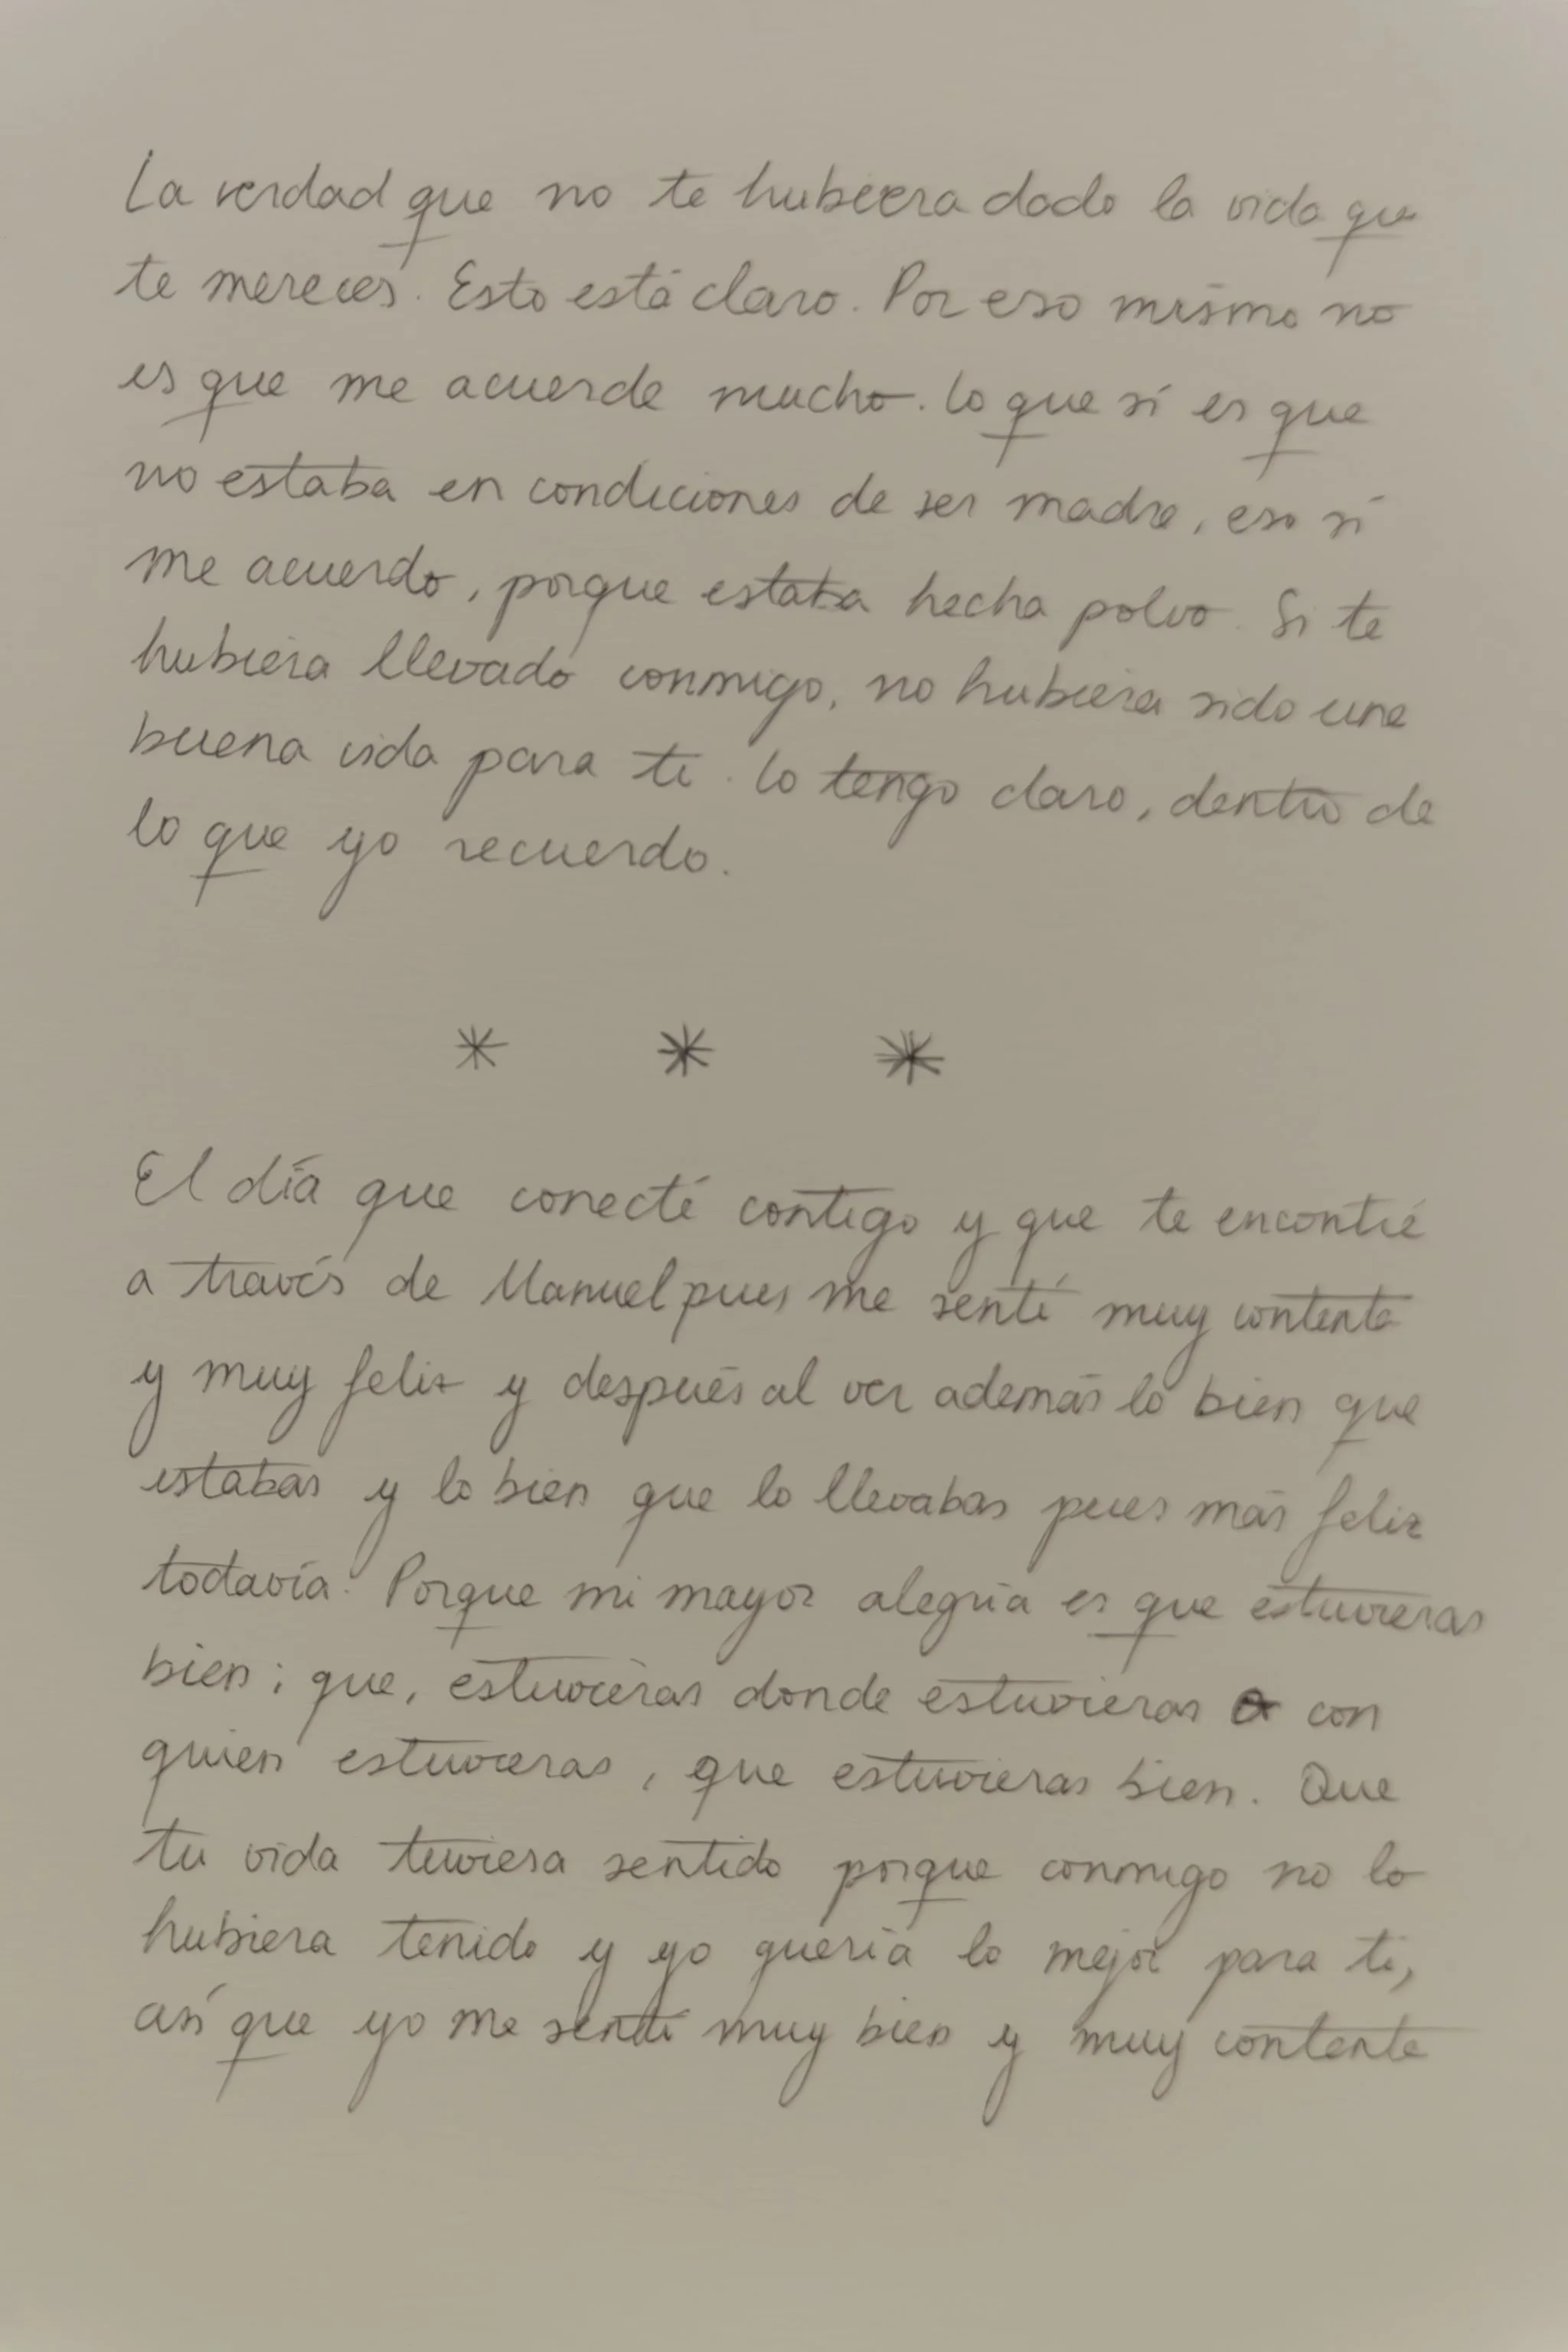 La verdad que no te hubiera dado la vida que
te mereces. Esto está claro. Por eso mismo no
es que me acuerde mucho. Lo que sí es que
no estaba en condiciones de ser madre, eso sí
me acuerdo, porque estaba hecha polvo. Si te
hubiera llevado conmigo, no hubiera sido una
buena vida para ti. Lo tengo claro, dentro de
lo que yo recuerdo.
* * *
El día que conecté contigo y que te encontré
a través de Manuel pues me sentí muy contenta
y muy feliz y después al ver además lo bien que
estabas y lo bien que lo llevabas pues más feliz
todavía. Porque mi mayor alegría es que estuvieras
bien; que, estuvieras donde estuvieras o con
quien estuvieras, que estuvieras bien. Que
tu vida tuviera sentido porque conmigo no lo
hubiera tenido y yo quería lo mejor para ti,
así que yo me sentí muy bien y muy contenta